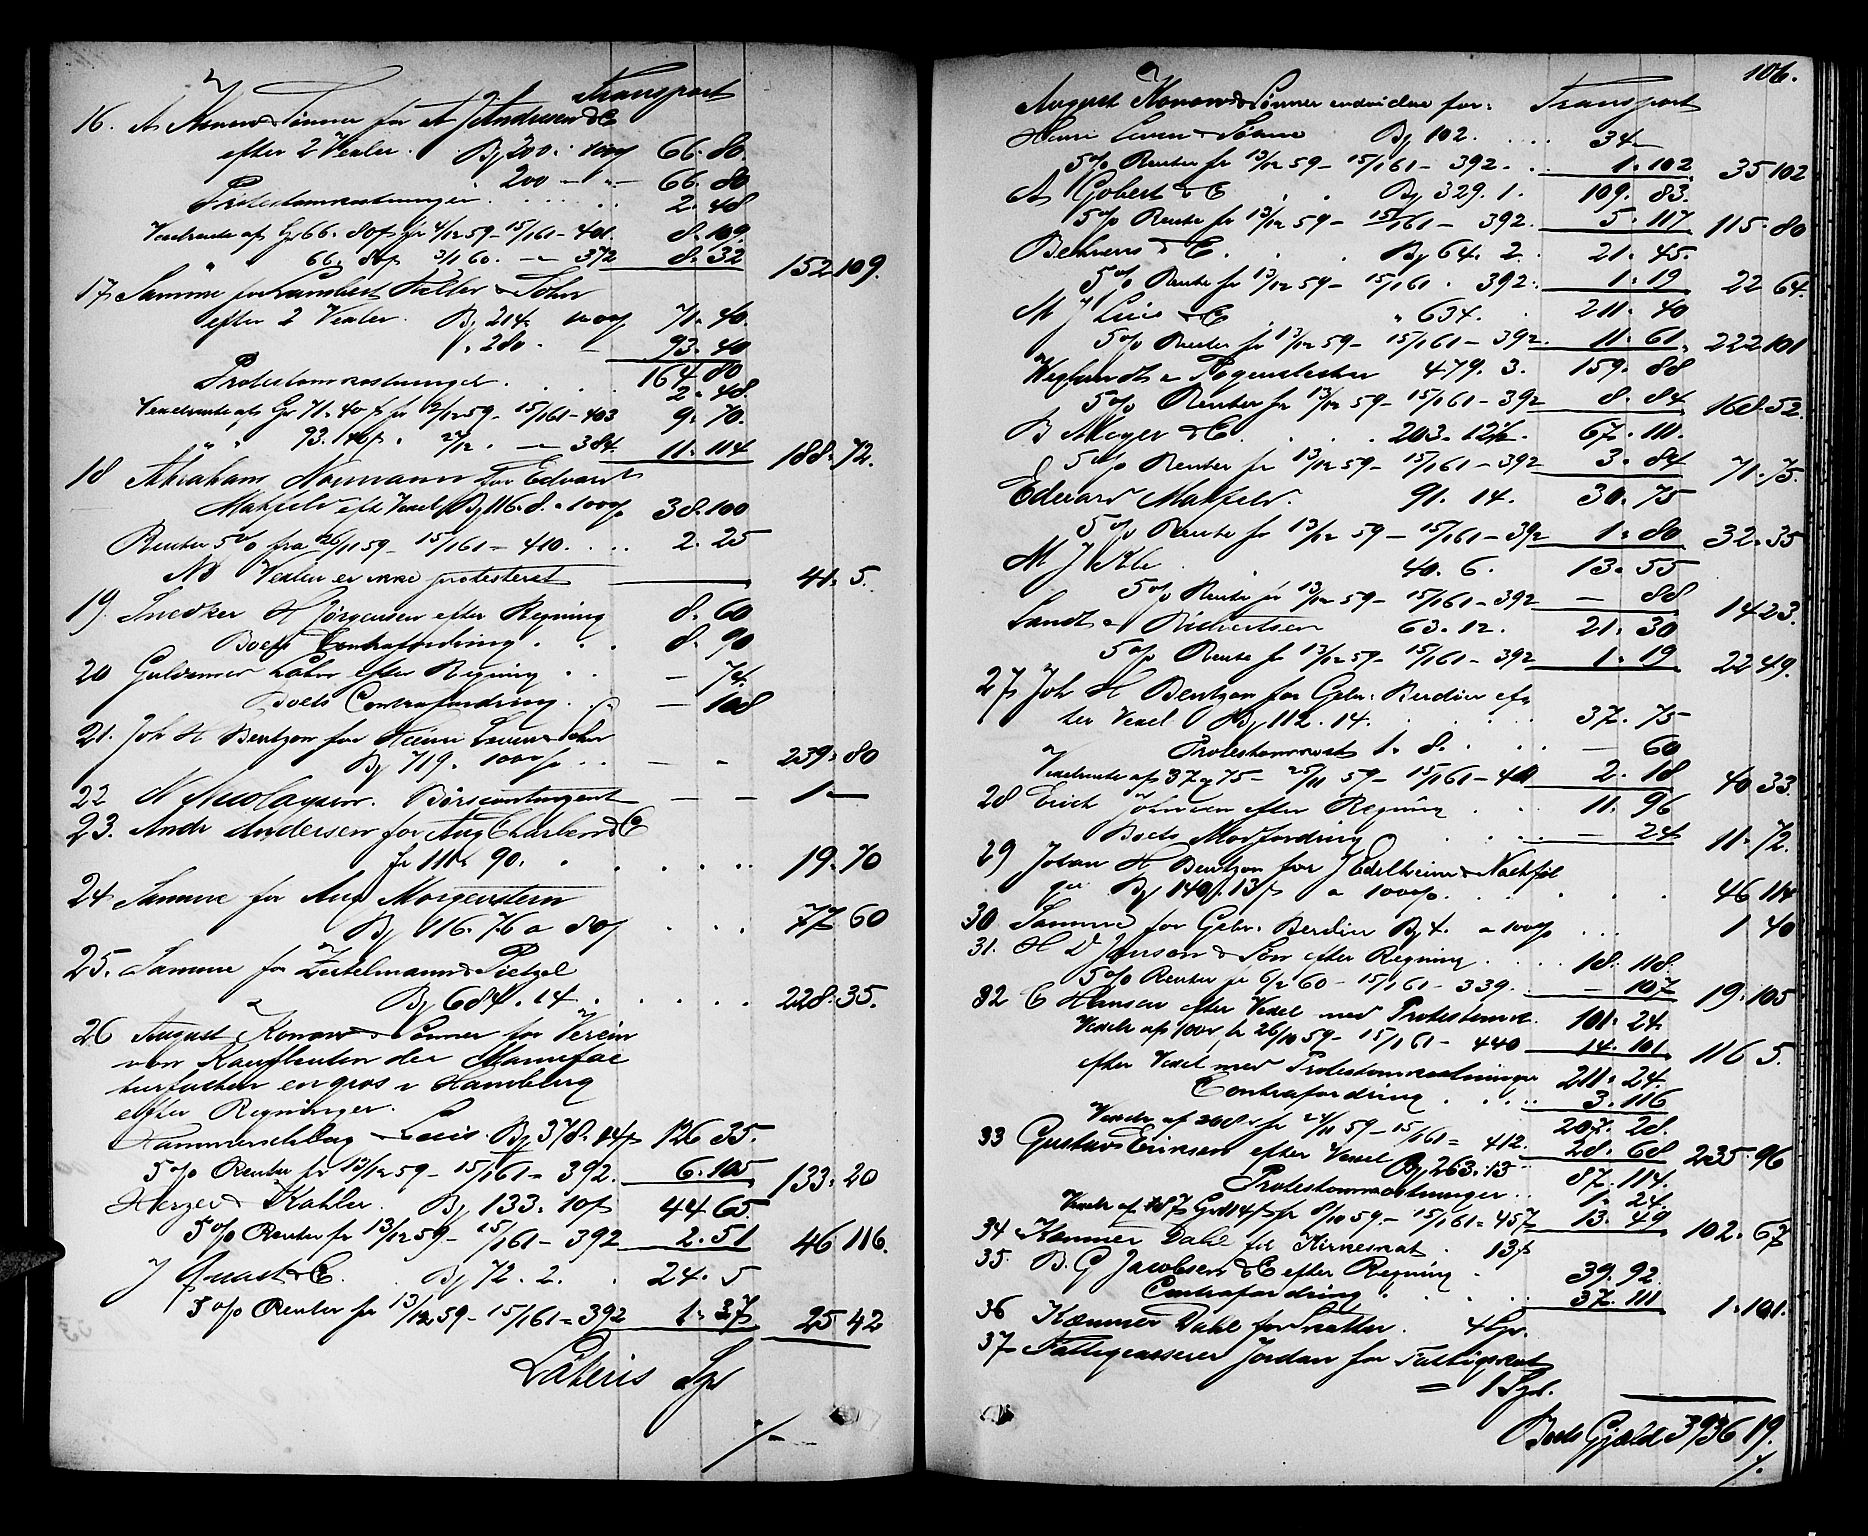 Transport
16. A Konow & Sønner for A J Andresen & C
efter 2 Vexler. Bz 200. 66. 80.
200 — " — 66. 80
Protestomkostninger. 2. 48
Vexelrente af 66. 80 fr 4/12 59 – 15/1 61 – 401. 8. 109.
" " 66. 80 3/1 60. — 372 8. 32 152. 109.
17 Samme for Lambert & Sohn
efter 2 Vexler. Bz 214. 71. 40.
" 280. — 93. 40
164 80
Protestomkostninger. 2. 48.
Vexelrente af 71. 40 fr 12/59 – 15/1 61 – 403 9. 70.
" " 93. 40 " 27/12. — 384. 11. 114 188. 72.
18 Abraham Neumann for Edvard
Matfeld efter Vexel Bz 116. 8. a 100 38. 100
Renter 5% fra 26/11 59 – 15/1 61 – 410. 2. 25
NB Vexlen er ikke protesteret 41. 5.
19. Snedker H Jørgensen efter Regning 8. 60
Boets Contrafordring. 8. 90
20 Guldsmed efter Regning — 74.
Boets Contrafordring. — 108
21. Joh H Bentzon for Heimr Leven & Sohn
Bz 719. 100 — - 239. 80
22 N Nicolaysen. Børscontingent — — — 1 —
23. Andr Andersen for Aug Charles & C
fr 111 90. 19. 70
24 Samme for Aug Morgenstern
Bz 116. 76 a 80 77 60
25. Samme for Zeitelmann & Pietzel
Bz 684. 14. 228. 35.
26 August Konow & Sønner for Verein
von Kaufleuten der Manufac
turfacher en gros i Hamburg
efter Regninger.
Hammerschlag & Levis. Bz 378. 14 126 35.
5% Renter fr 13/12 59 – 15/1 61 – 392. 6. 105 133. 20
Herzer & Kahler. Bz 133. 10 44 65.
5% Renter fr 13/12 59 – 15/1 61 – 392 2. 51 46 116.
J Quast & C. Bz 72. 2. 24. 5
5% Renter fr 13/12 59 – 15/1 61 = 392 1. 37 25 42
Lateris Spd
106.
August Konow & Sønner endvidere for: Transport
Heimr Leven & Sønne Bz 102. 34 —
5% Renter fr 13/12 59 – 15/1 61 – 392. 1. 102 35 102
A Gobert & C Bz 329. 1. 109. 83.
5% Rente fr 13/12 59 – 15/1 61 – 392. 5. 117 115. 80
Behrens & C. Bz 64. 2. 21. 45.
5% Rente fr 13/12 59 – 15/1 61. 392. 1. 19 22 64.
M J Levis & C " 634. 211. 40
5% Renter fr 13/12 59 – 15/1 61 – 392. 11. 61. 222 101
479. 3. 159. 88
5% Renter fr 13/12 59 – 15/1 61 – 392 8. 84 168. 52.
B Meyer & C. 203. 12½. 67. 111.
5% Renter fr 13/12 59 – 15/1 61 – 392 3. 84 71. 75.
Edvard Matfeld. 91. 14. 30. 75
5% Rente fr 13/12 59 – 15/1 61 – 392 1. 80 32. 35
M J 40. 6. 13. 55
5% Rente fr 13/12 59 – 15/1 61 – 392 — 88 14 23.
Sandt & Richertsen 63. 12. 21. 30
5% Rente fr 13/12 59 – 15/1 61 – 392 1. 19 22 49.
27 Joh H Bentzon for Gebr. Berdien ef
ter Vexel Bz 112. 14. 37. 75
Protestomkost 1. 8. — 60
Vexelrente af 37. 75 – 25/11 59 – 15/1 61 – 411 2. 18 40 33.
28 Erich Johnsen efter Regning 11. 96
Boets Modfordring — 24 11. 72.
29 Johan H Bentzon for J Edelheim & Nachfol
ger Bz 140. 13 a 100. 46 114
30 Samme for Gebr. Berdien Bz 4. a 100 1 40
31. H D Jansen & Søn efter Regning. 18. 118.
5% Renter fr 6/2 60 – 15/1 61 – 339. — 107 19. 105
32 C Hansen efter Vexel med Protestomk. 101. 24.
Vexelr af 100 fr 26/10 59 – 15/1 61 – 440 14. 101 116 5.
efter Vexel med Protestomkostninger 211. 24.
Contrafordring. 3. 116
207. 28.
Vexelr af 208. fr 24/11 59 – 15/1 61 = 412. 28. 68 235. 96
33 Gustav Eriksen efter Vexel Bz 263. 13 87. 114.
Protestomkostninger 1. 24.
Vexelr af 87 114 fr 8/10 59. – 15/1 61 = 457 13. 49 102. 67
34 Kæmner Dahl for Kirkeskat. 13
35. B. G Jacobsen & C efter Regning. 39. 92.
Contrafordring. 37. 111 1. 101.
36 Kæmner Dahl for Skatter. 4 Spd.
37 Fattigcasserer Jordan for Fattigskat
= 1 Spd.
Boets Gjæld 3936 19.